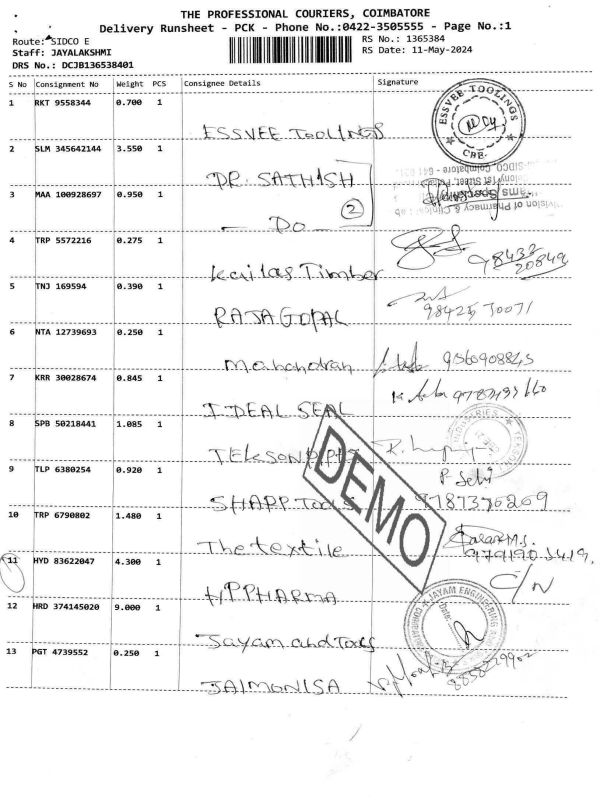 THE PROFESSIONAL COURIERS, COIMBATORE
Delivery Runsheet - PCK - Phone No.:0422-3505555 - Page No.:1
Route: SIDCO E
RS No.: 1365384
Staff: JAYALAKSHMI
RS Date: 11-May-2024
DRS No.: DCJB136538401
S No Consignment No Weight PCS Consignee Details Signature
1 RKT 9558344 0.700 1
ESSVEE TOOLINGS
ESSVEE TOOLINGS
CBE.
2 SLM 345642144 3.550 1
DR. SATHISH
3 MAA 100928697 0.950 1
2
Do
4 TRP 5572216 0.275 1
Kailas Timber
98432
20849
5 TNJ 169594 0.390 1
RAJAGOPAL
98425 70071
6 NTA 12739693 0.250 1
Manohoran
9566908845
7 KRR 30028674 0.845 1
IDEAL SEAL
8 SPB 50218441 1.085 1
9 TLP 6380254 0.920 1
SHARP Tools
9787370209
10 TRP 6790802 1.480 1
The textile
11 HYD 83622047 4.300 1
C/N
HPPHARMA
12 HRD 374145020 9.000 1
JAYAM ENGINEERING
Jayam and Tools
13 PGT 4739552 0.250 1
JAIMONISA
8838229902
DEMO